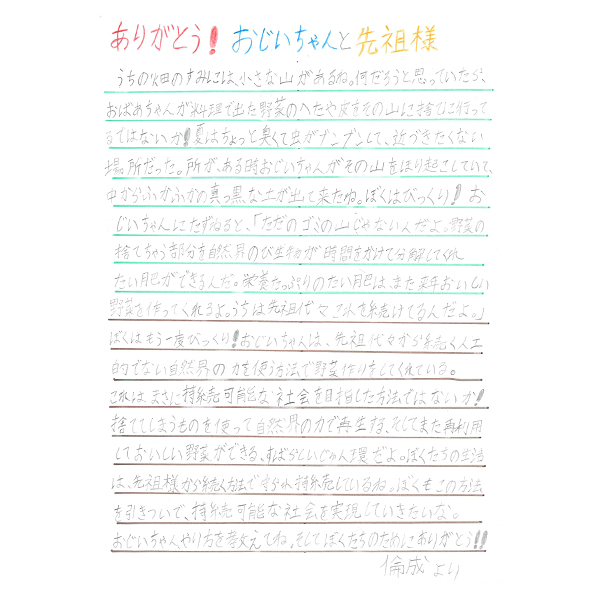 ありがとう！ おじいちゃんと先祖様
うちの畑のすみには、小さな山があるね。何だろうと思っていたら、
おばあちゃんが料理で出た野菜のへたや皮をその山に捨てに行って
るではないか！夏はちょっと臭くて虫がブンブンして、近づきたくない
場所だった。所が、ある時おじいちゃんがその山をほり起こしていて、
中からふかふかの真っ黒な土が出て来たね。ぼくはびっくり！お
じいちゃんにたずねると、「ただのゴミの山じゃないんだよ。野菜の
捨てちゃう部分を自然界のび生物が時間をかけて分解してくれ
たい肥ができるんだ。栄養たっぷりのたい肥は、また来年おいしい
野菜を作ってくれるよ。うちは先祖代々これを続けてるんだよ。」
ぼくはもう一度びっくり！おじいちゃんは、先祖代々から続く人工
的でない自然界の力を使う方法で野菜作りをしてくれている。
これはまさに持続可能な社会を目指した方法ではないか！
捨ててしまうものを使って自然界の力で再生な、そしてまた再利用
しておいしい野菜ができる、すばらしいじゅん環だよ。ぼくたちの生活
は、先祖様から続く方法で守られ持続しているね。ぼくもこの方法
を引きついで、持続可能な社会を実現していきたいな。
おじいちゃんやり方を教えてね。そしてぼくたちのためにありがとう！！
倫成より